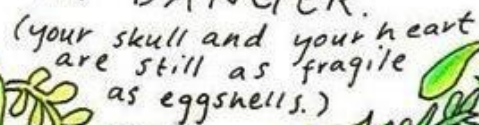 DANGER.
(your skull and your heart
are still as fragile
as eggshells.)